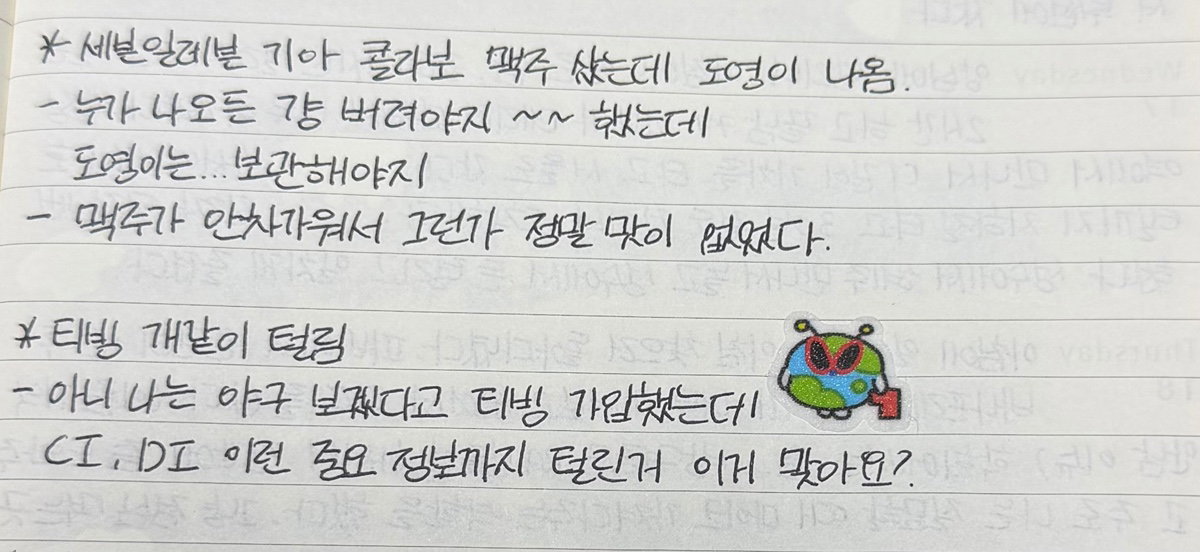 * 세븐일레븐 기아 콜라보 맥주 샀는데 도영이 나옴.
- 누가 나오든 걍 버려야지 ~~ 했는데
도영이는... 보관해야지
- 맥주가 안차가워서 그런가 정말 맛이 없었다.
* 티빙 개같이 털림
- 아니 나는 야구 보겠다고 티빙 가입했는데
CI, DI 이런 중요 정보까지 털린거 이거 맞아요?